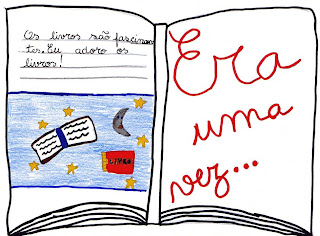 Os livros são fascinan-
tes. Eu adoro os
livros!
LIVRO
Era
uma
vez...